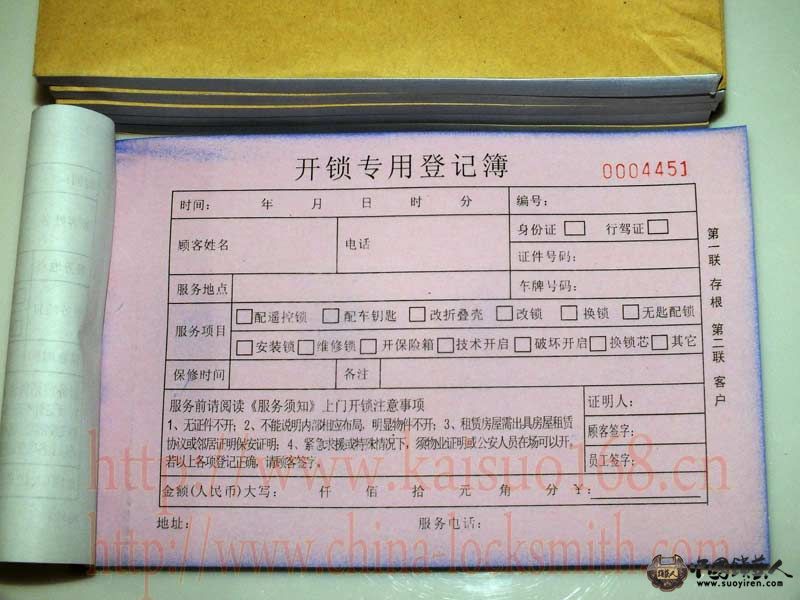 开锁专用登记簿
0004451
时间： 年 月 日 时 分 编号：
顾客姓名 电话 身份证 行驾证
证件号码：
服务地点 车牌号码：
服务项目 配遥控锁 配车钥匙 改折叠壳 改锁 换锁 无匙配锁
安装锁 维修锁 开保险箱 技术开启 破坏开启 换锁芯 其它
保修时间 备注
服务前请阅读《服务须知》上门开锁注意事项
1、无证件不开；2、不能说明内部相应布局，明显物件不开；3、租赁房屋需出具房屋租赁
协议或邻居证明保安证明；4、紧急求援或特殊情况下，须物业证明或公安人员在场可以开，
若以上各项登记正确，请顾客签字。
证明人：
顾客签字：
员工签字：
金额(人民币)大写： 仟 佰 拾 元 角 分 ¥：
地址： 服务电话：
第一联 存根 第二联 客户
http://www.kaisuo108.cn
http://www.china-locksmith.com
中国锁艺人
www.suoyiren.com